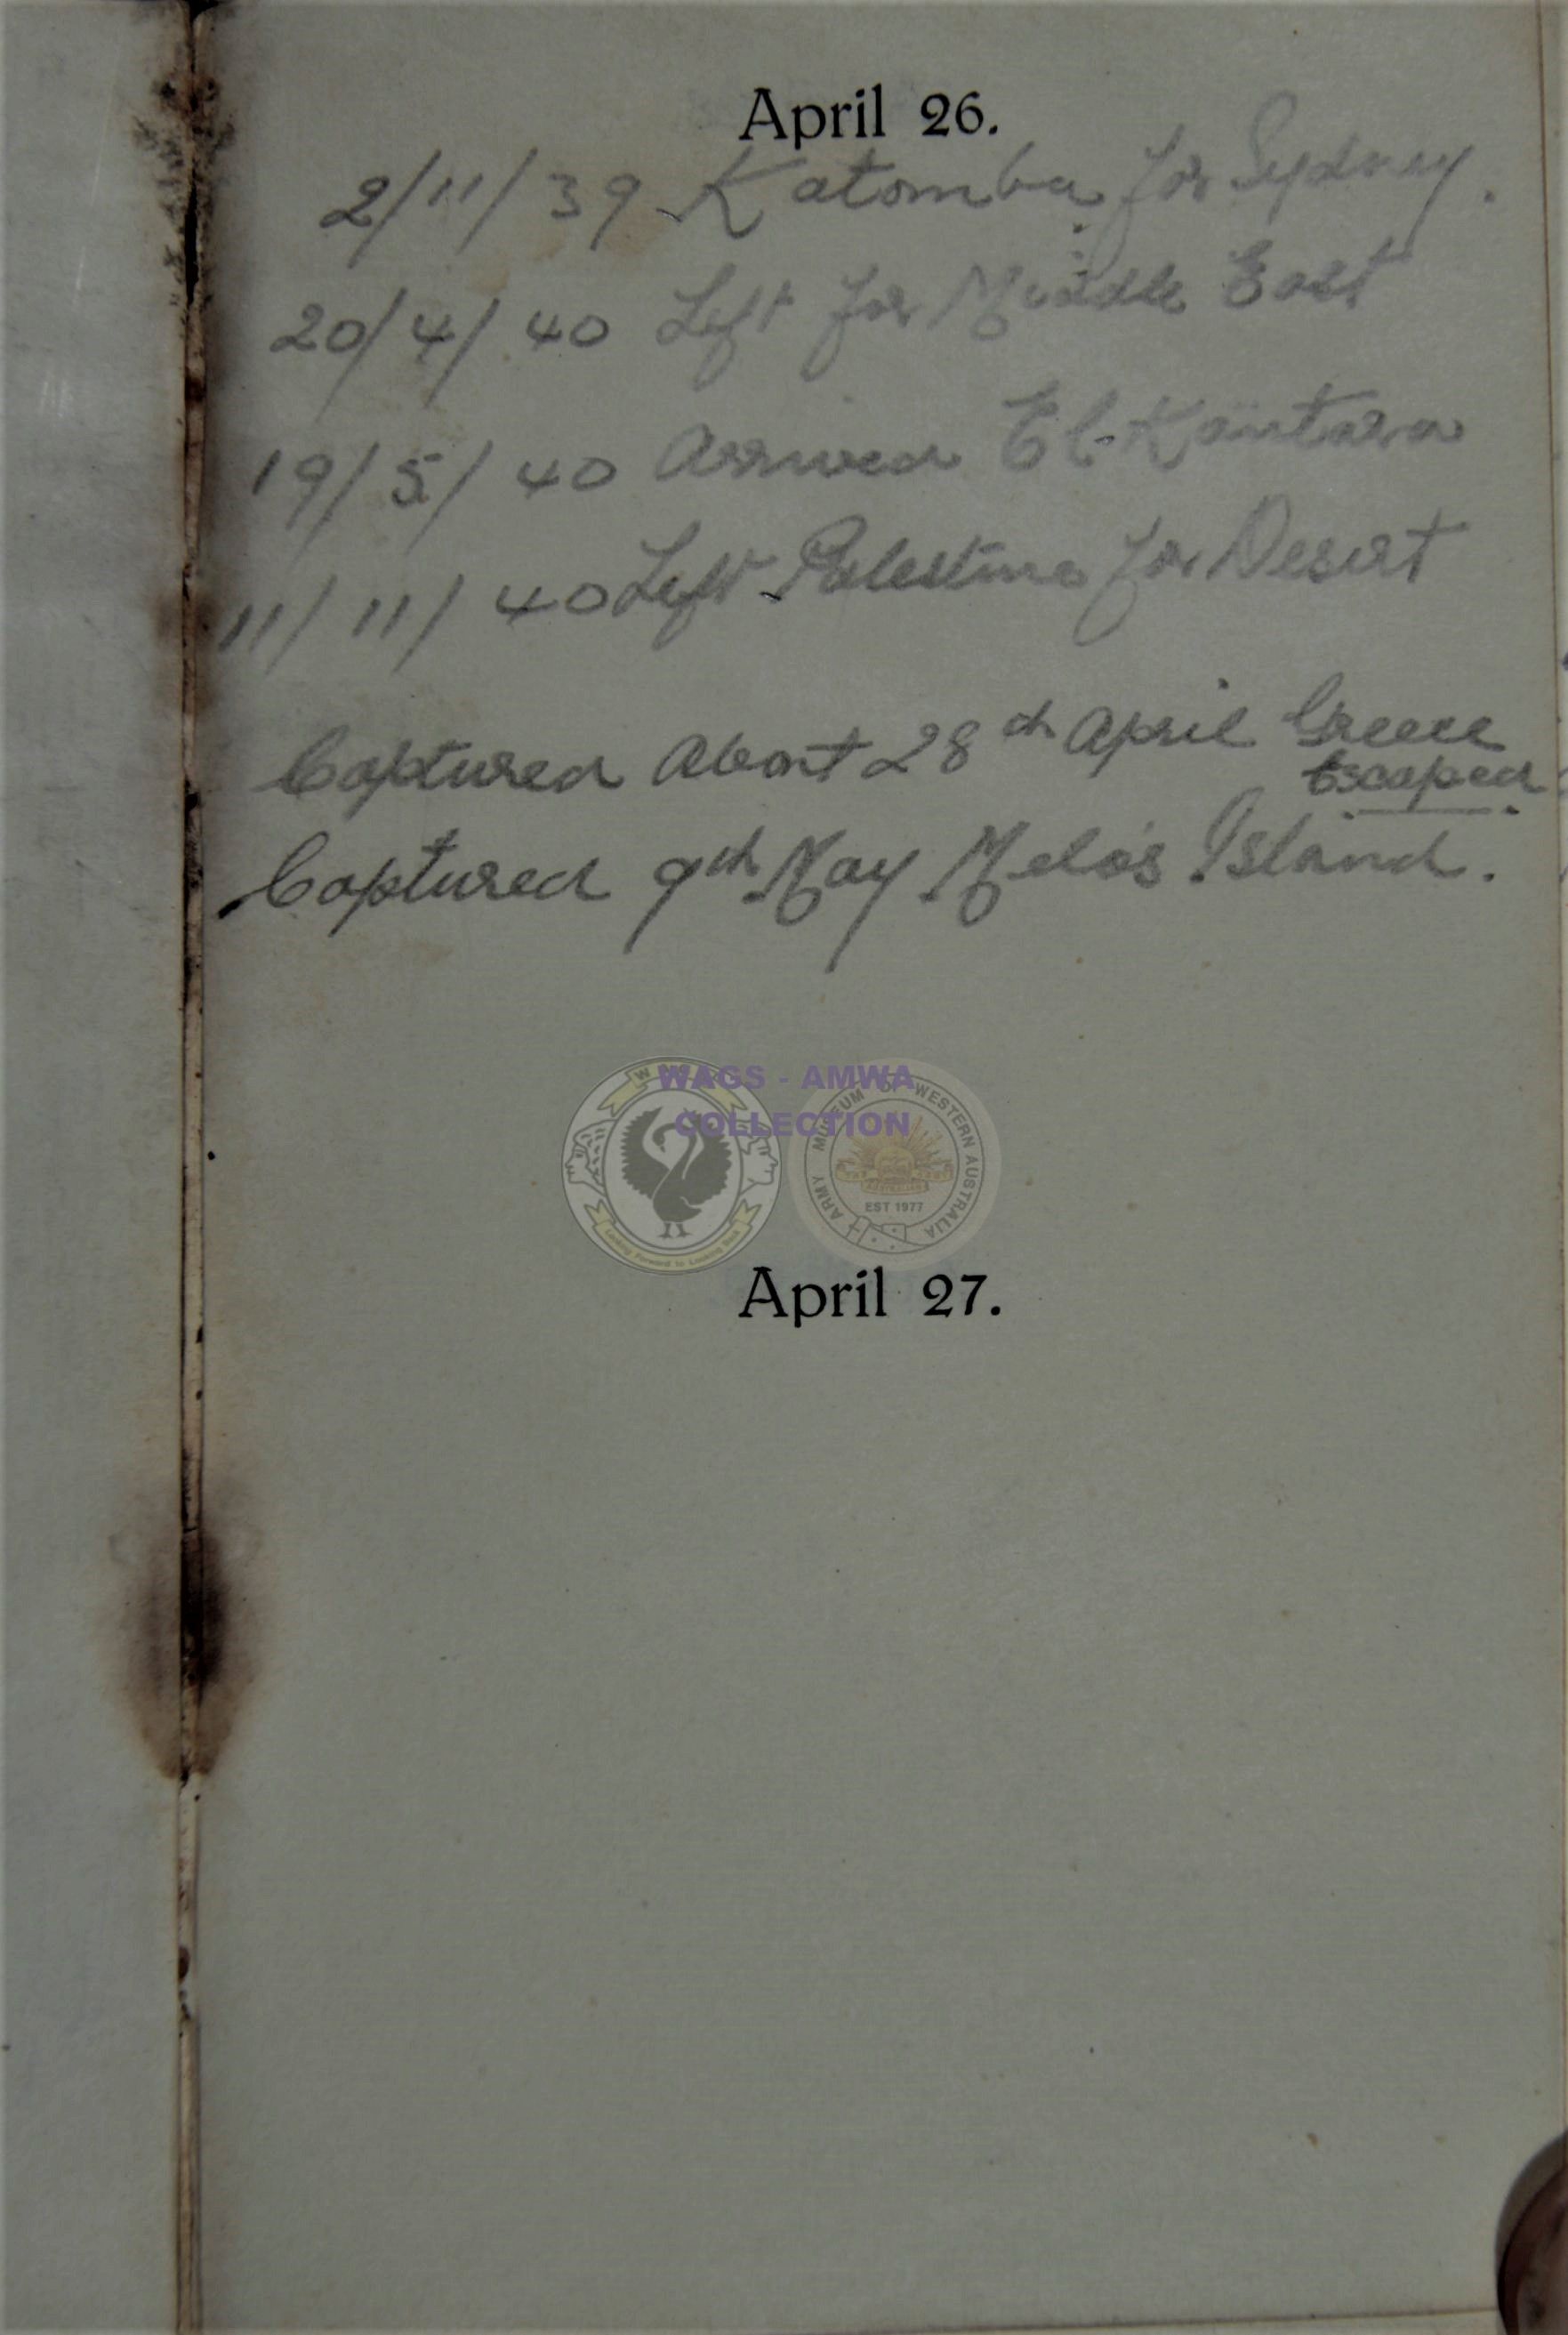 April 26.
2/11/39 Katomba for Sydney.
20/4/40 Left for Middle East
19/5/40 Arrived El-Kantara
11/11/40 Left Palestine for Desert
Captured About 28th April Greece
Escaped
Captured 9th May Melos Island.
WAGS - AMWA
COLLECTION
ARMY MUSEUM OF WESTERN AUSTRALIA
EST 1977
Looking Forward to Looking Back
April 27.